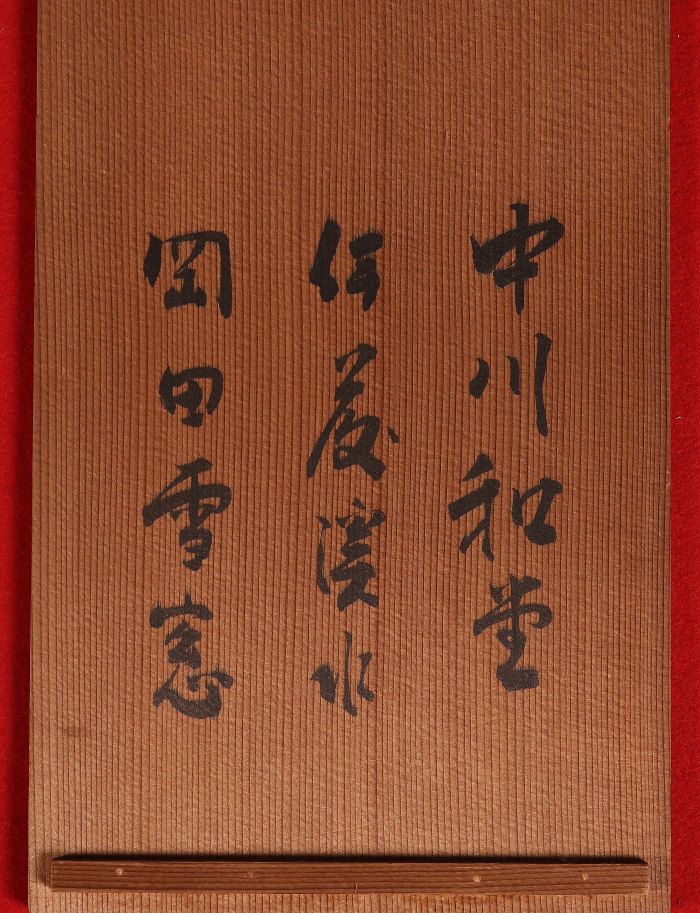 中川和堂
伊藤溪水
岡田雪窓